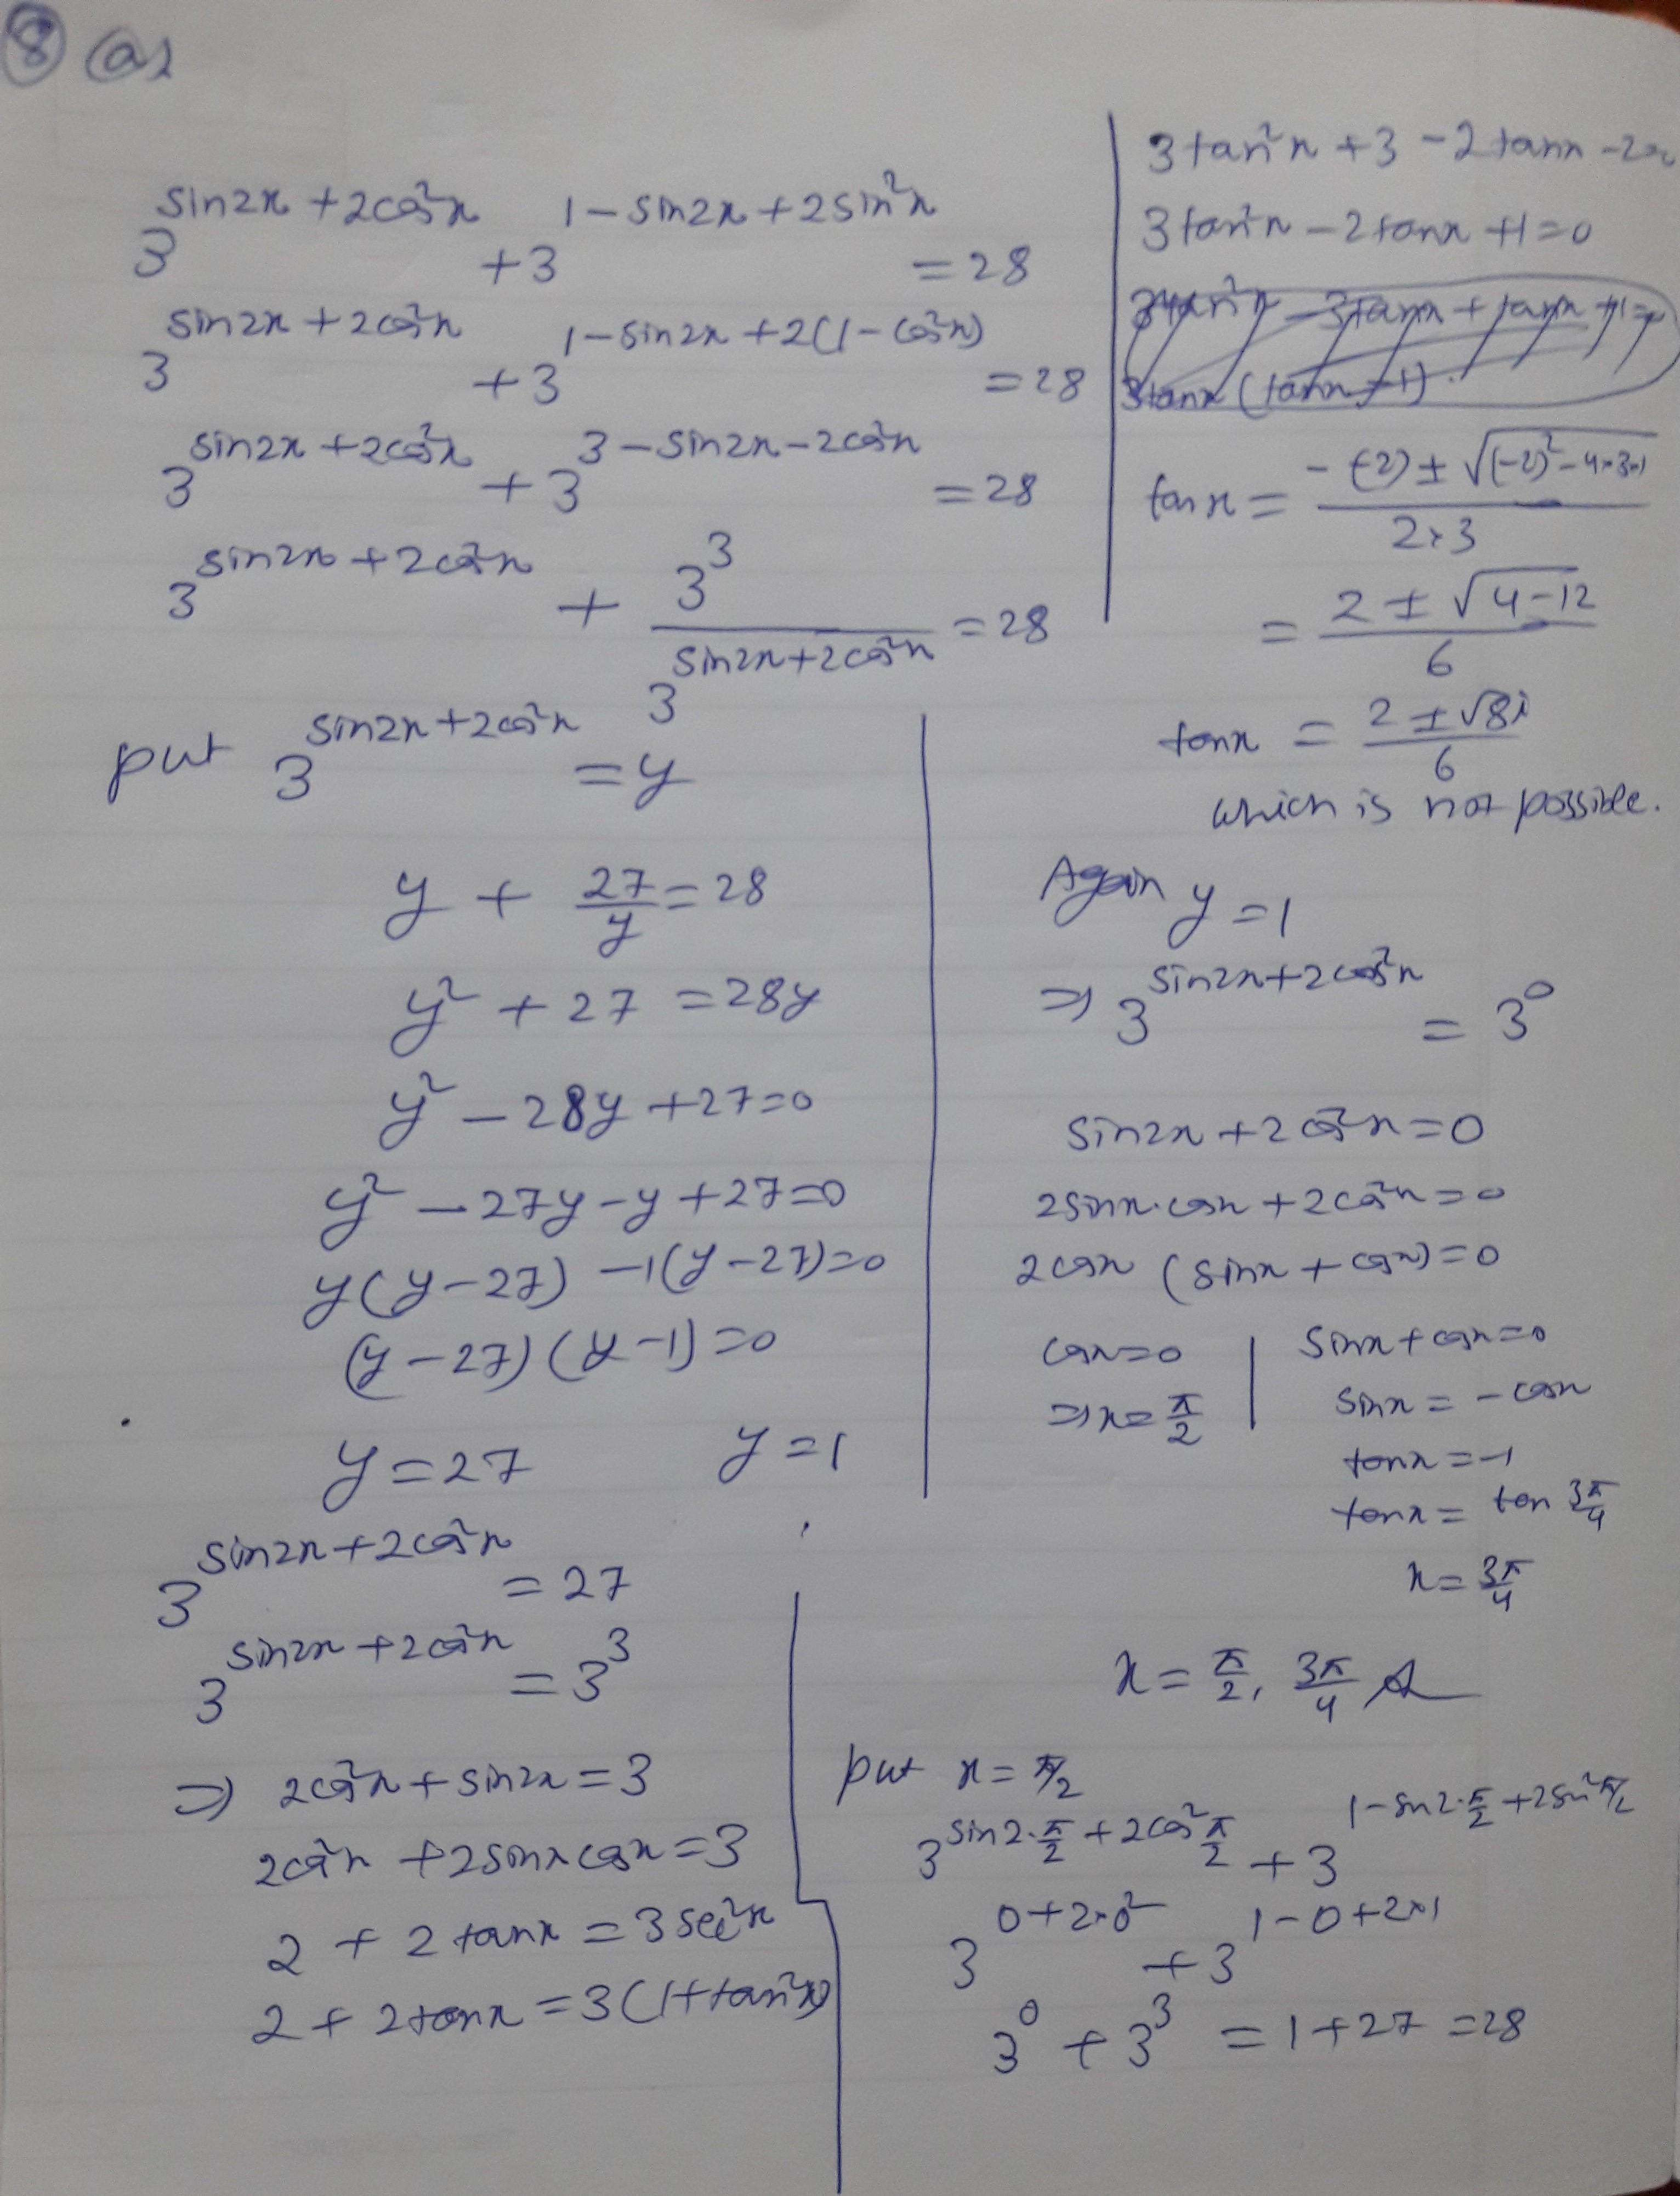 8 (a)
3^(sin2x + 2cos²x) + 3^(1 - sin2x + 2sin²x) = 28
3^(sin2x + 2cos²x) + 3^(1 - sin2x + 2(1 - cos²x)) = 28
3^(sin2x + 2cos²x) + 3^(3 - sin2x - 2cos²x) = 28
3^(sin2x + 2cos²x) + 3³/3^(sin2x + 2cos²x) = 28
put 3^(sin2x + 2cos²x) = y
y + 27/y = 28
y² + 27 = 28y
y² - 28y + 27 = 0
y² - 27y - y + 27 = 0
y(y - 27) - 1(y - 27) = 0
(y - 27) (y - 1) = 0
y = 27 y = 1
3^(sin2x + 2cos²x) = 27
3^(sin2x + 2cos²x) = 3³
⇒ 2cos²x + sin2x = 3
2cos²x + 2sinx cosx = 3
2 + 2tanx = 3sec²x
2 + 2tanx = 3(1 + tan²x)
3tan²x + 3 - 2tanx - 2 = 0
3tan²x - 2tanx + 1 = 0
3tan²x - 3tanx + tanx + 1 =
3tanx (tanx - 1)
tanx = (-(-2) ± √((-2)² - 4×3×1))/(2×3)
= (2 ± √(4 - 12))/6
tanx = (2 ± √8i)/6
which is not possible.
Again y = 1
⇒ 3^(sin2x + 2cos²x) = 3⁰
sin2x + 2cos²x = 0
2sinx.cosx + 2cos²x = 0
2cosx (sinx + cosx) = 0
cosx = 0 | sinx + cosx = 0
⇒ x = π/2 | sinx = -cosx
tanx = -1
tanx = tan 3π/4
x = 3π/4
x = π/2, 3π/4
put x = π/2
3^(sin2.π/2 + 2cos²π/2) + 3^(1 - sin2.π/2 + 2sin²π/2)
3^(0 + 2×0²) + 3^(1 - 0 + 2×1)
3⁰ + 3³ = 1 + 27 = 28